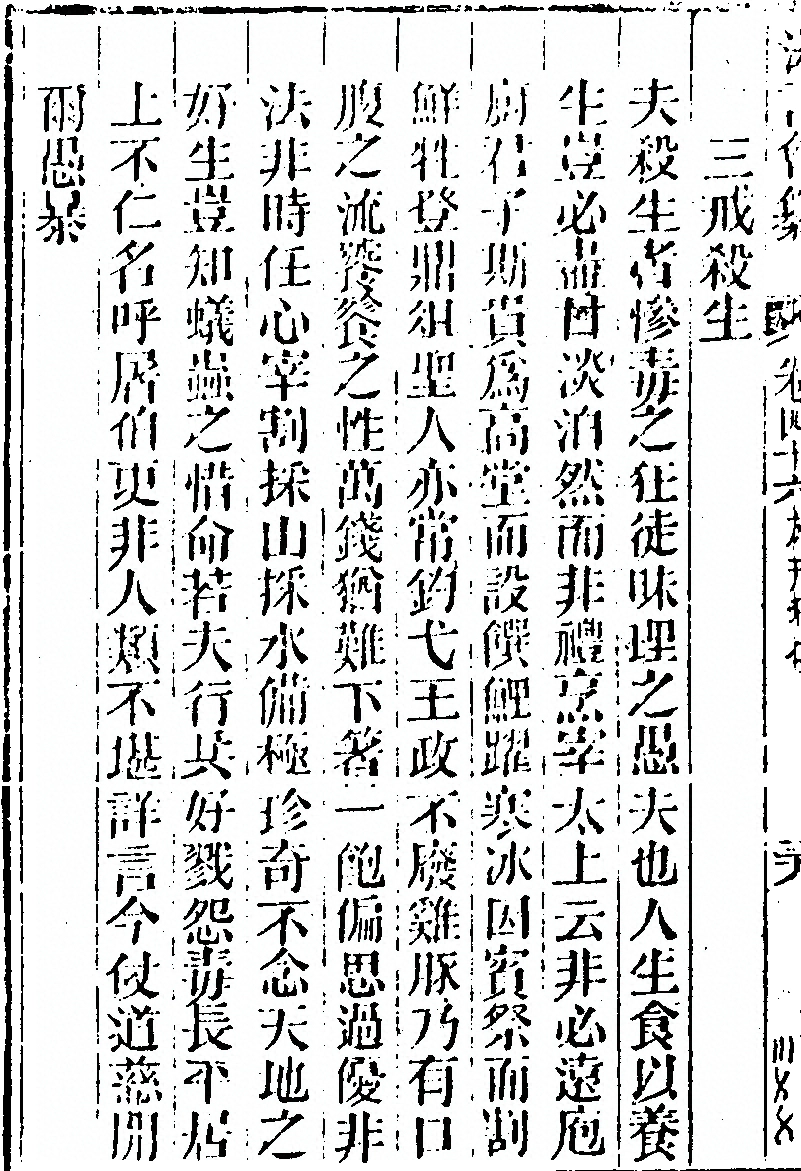 三戒殺生
夫殺生者慘毒之狂徒昧理之愚夫也人生食以養
生豈必盡甘淡泊然而非禮烹宰太上云非必遠庖
廚君子斯貴爲高堂而設饌鯉躍寒冰因賓祭而割
鮮牲登鼎俎聖人亦常釣弋王政不廢雞豚乃有口
腹之流饕餮之性萬錢猶難下著一飽偏思過優非
法非時任心宰割採山採水備極珍奇不念天地之
好生豈知蟻蝨之惜命若夫行兵好戮怨毒長平居
上不仁名呼屠伯更非人類不堪詳言今仗道慈開
爾愚暴